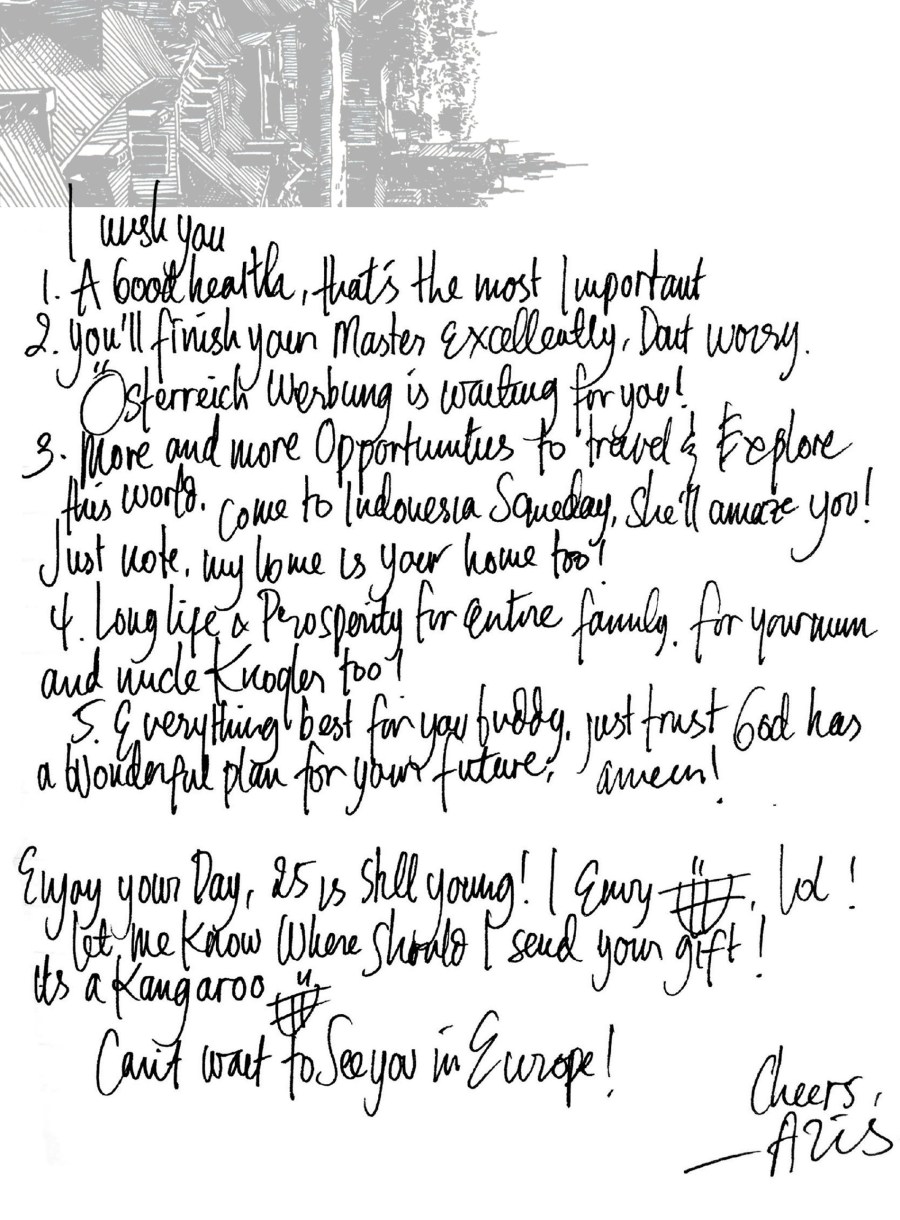 I wish you
1. A Good health, that's the most Important
2. you'll finish your Master Excellently, Don't worry.
Österreich Werbung is waiting for you!
3. More and more Opportunities to travel & Explore
this world. Come to Indonesia Someday, She'll amaze you!
Just note, my home is your home too!
4. Long life & Prosperity for entire family. for your mum
and uncle Knogler too!
5. Everything best for you buddy, just trust God has
a Wonderful plan for your future, ameen!
Enjoy your Day, 25 is Still young! I Envy, lol!
let me know Where Should I send your gift!
its a Kangaroo
Can't wait to See you in Europe!
Cheers,
—Azis